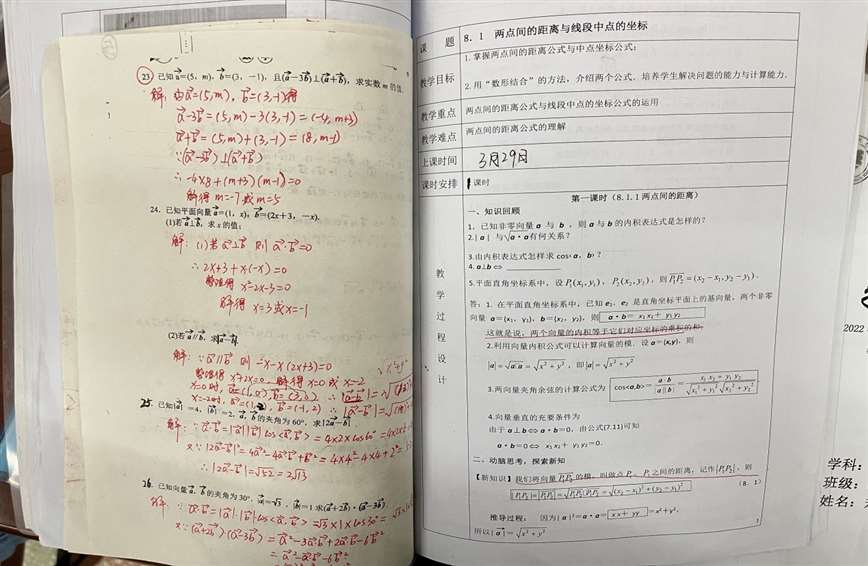 23. 已知a=(5, m), b=(3, -1), 且(a-3b)⊥(a+b), 求实数 m 的值.
解: 由a=(5,m), b=(3,-1)得
a-3b=(5,m)-3(3,-1)=(-4,m+3)
a+b=(5,m)+(3,-1)=(8,m-1)
∵(a-3b)⊥(a+b)
∴-4×8+(m+3)(m-1)=0
解得 m=-7或m=5
24. 已知平面向量a=(1, x), b=(2x+3, -x),
(1)若a⊥b, 求x的值;
解: (1)若a⊥b 则 a·b=0
∴2x+3+x(-x)=0
整理得 x²-2x-3=0
解得 x=3或x=-1
(2)若a∥b, 求|a-b|
解: ∵a∥b 则 -x-x(2x+3)=0
整理得 x²+2x=0 解得 x=0或 x=-2
x=0时, a=(1,0), b=(3,0) ∴|a-b|=
x=-2时, a=(1,-2), b=(-1,2) ∴|a-b|=
25. 已知|a|=4, |b|=2, a, b的夹角为60°, 求|2a-b|
解: ∵a·b=|a||b|cos<a,b>=4×2×cos60°
又∵|2a-b|²=4a²-4a·b+b²=4×4²-4×4+2²
∴|2a-b|=√52=2√13
26. 已知向量a, b的夹角为30°, |a|=√3, |b|=1求(a+2b)·(a-3b).
解: ∵a·b=|a|·|b|cos<a,b>=√3×1×cos30°
又∵(a+2b)(a-3b)=a²-3a·b+2a·b-6b²
=a²-a·b-6b²
课 题 8.1 两点间的距离与线段中点的坐标
教学目标 1.掌握两点间的距离公式与中点坐标公式;
2.用“数形结合”的方法，介绍两个公式. 培养学生解决问题的能力与计算能力.
教学重点 两点间的距离公式与线段中点的坐标公式的运用
教学难点 两点间的距离公式的理解
上课时间 3月29日
课时安排 1课时
教学过程设计
第一课时（8.1.1两点间的距离）
一、知识回顾
1. 已知非零向量 a 与 b ，则 a 与 b 的内积表达式是怎样的?
2.| a | 与√a·a有何关系?
3.由内积表达式怎样求 cos‹a, b›?
4. a⊥b ⇔
5.平面直角坐标系中，设 P₁(x₁,y₁), P₂(x₂,y₂), 则 P₁P₂=(x₂-x₁,y₂-y₁).
答: 1. 在平面直角坐标系中，已知 e₁, e₂ 是直角坐标平面上的基向量，两个非零
向量 a=(x₁, y₁), b=(x₂, y₂), 则 a·b= x₁x₂+ y₁y₂
这就是说，两个向量的内积等于它们对应坐标的乘积的和.
2.利用向量内积公式可以计算向量的模. 设 a=(x,y), 则
|a|=√a·a=√x²+y², 即|a|=√x²+y²
3.两向量夹角余弦的计算公式为 cos<a,b>=a·b/|a||b|=x₁x₂+y₁y₂/√x₁²+y₁²√x₂²+y₂²
4.向量垂直的充要条件为
由于 a⊥b ⇔ a·b=0, 由公式(7.11)可知
a·b=0⇔ x₁x₂+ y₁y₂=0.
二、动脑思考，探索新知
【新知识】我们将向量 P₁P₂ 的模, 叫做点 P₁、P₂ 之间的距离, 记作|P₁P₂|, 则
|P₁P₂|=|P₁P₂|=√P₁P₂·P₁P₂=√(x₂-x₁)²+(y₂-y₁)² （8.1）
推导过程: 因为| a |²=a·a= xx+ yy =x²+y²,
所以| a |=√x²+y²
1
2022
学科:
班级:
姓名: